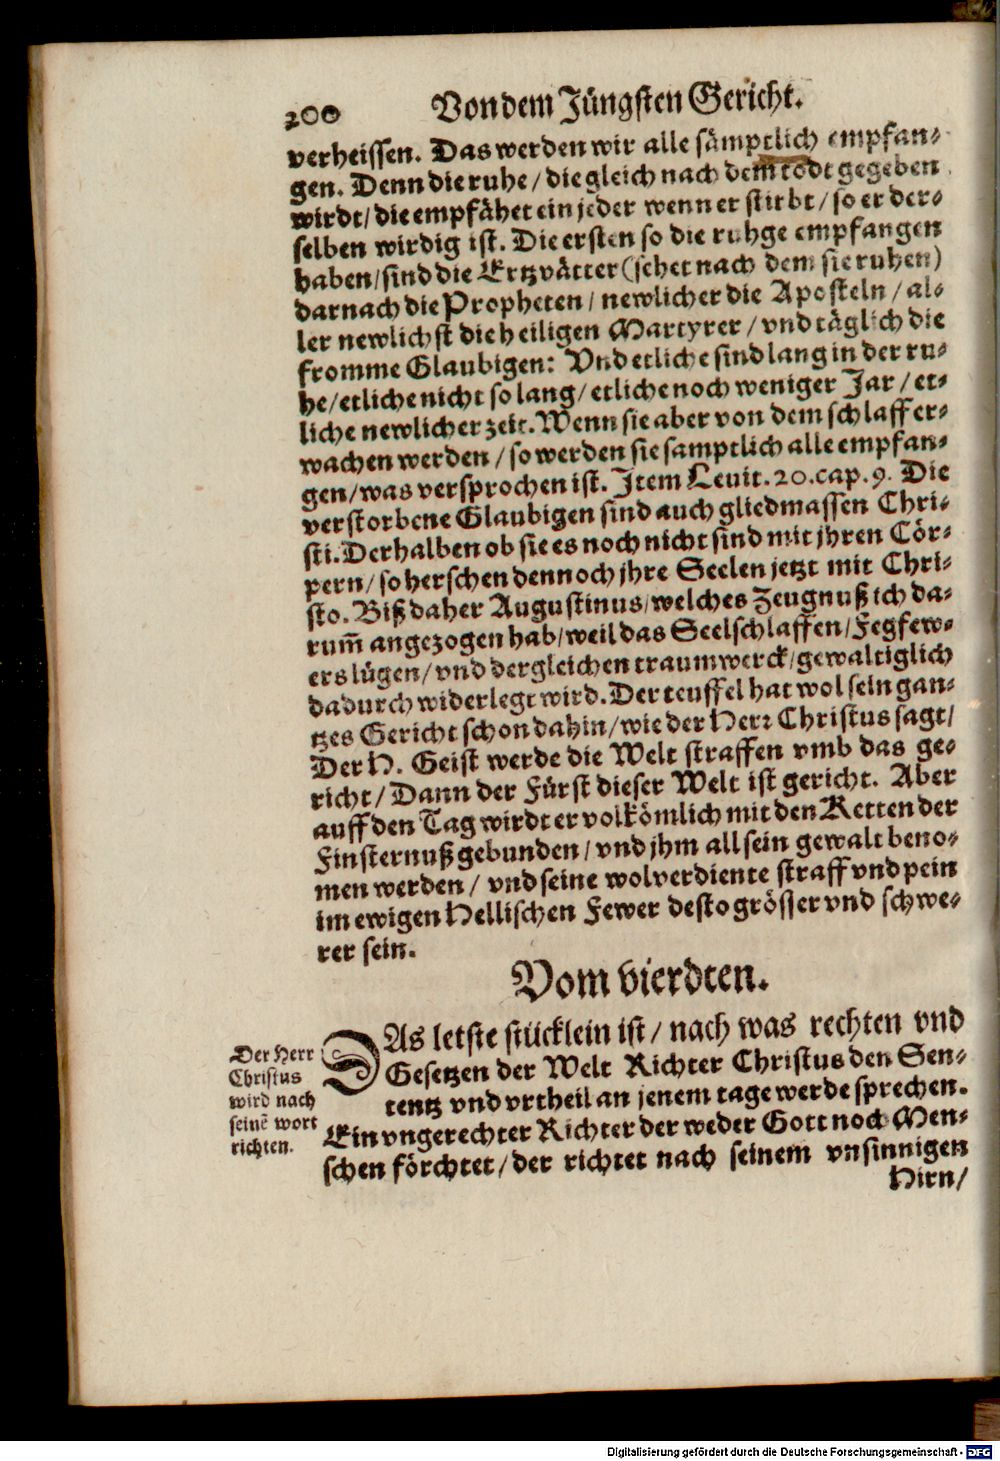 200 Von dem Jüngsten Gericht.
verheissen. Das werden wir alle sämptlich empfan-
gen. Denn die ruhe / die gleich nach dem todt gegeben
wirdt / die empfähet ein jeder wenn er stirbt / so er der-
selben wirdig ist. Die ersten so die ruhge empfangen
haben / sind die Ertzvätter (sehet nach dem sie ruhen)
darnach die Propheten / newlicher die Aposteln / al-
ler newlichst die heiligen Martyrer / vnd täglich die
fromme Glaubigen: Vnd etliche sind lang in der ru-
he / etliche nicht so lang / etliche noch weniger Jar / et-
liche newlicher zeit. Wenn sie aber von dem schlaff er-
wachen werden / so werden sie samptlich alle empfan-
gen / was versprochen ist. Item Leuit. 20. cap. 9. Die
verstorbene Glaubigen sind auch gliedmassen Chri-
sti. Derhalben ob sie es noch nicht sind mit jhren Cör-
pern / so herschen dennoch jhre Seelen jetzt mit Chri-
sto. Biß daher Augustinus / welches Zeugnuß ich da-
rum̃ angezogen hab / weil das Seelschlaffen / Fegfew-
ers lügen / vnd dergleichen traumwerck / gewaltiglich
dadurch widerlegt wird. Der teuffel hat wol sein gan-
tzes Gericht schon dahin / wie der Herr Christus sagt /
Der H. Geist werde die Welt straffen vmb das ge-
richt / Dann der Fürst dieser Welt ist gericht. Aber
auff den Tag wirdt er volkömlich mit den Ketten der
Finsternuß gebunden / vnd jhm all sein gewalt beno-
men werden / vnd seine wolverdiente straff vnd pein
im ewigen Hellischen Fewer desto grösser vnd schwe-
rer sein.
Vom vierdten.
DAs letste stücklein ist / nach was rechten vnd
Gesetzen der Welt Richter Christus den Sen-
tentz vnd vrtheil an jenem tage werde sprechen.
Ein vngerechter Richter der weder Gott noch Men-
schen förchtet / der richtet nach seinem vnsinnigen
Hirn /
Der Herr
Christus
wird nach
seinẽ wort
richten.
Digitalisierung gefördert durch die Deutsche Forschungsgemeinschaft - DFG